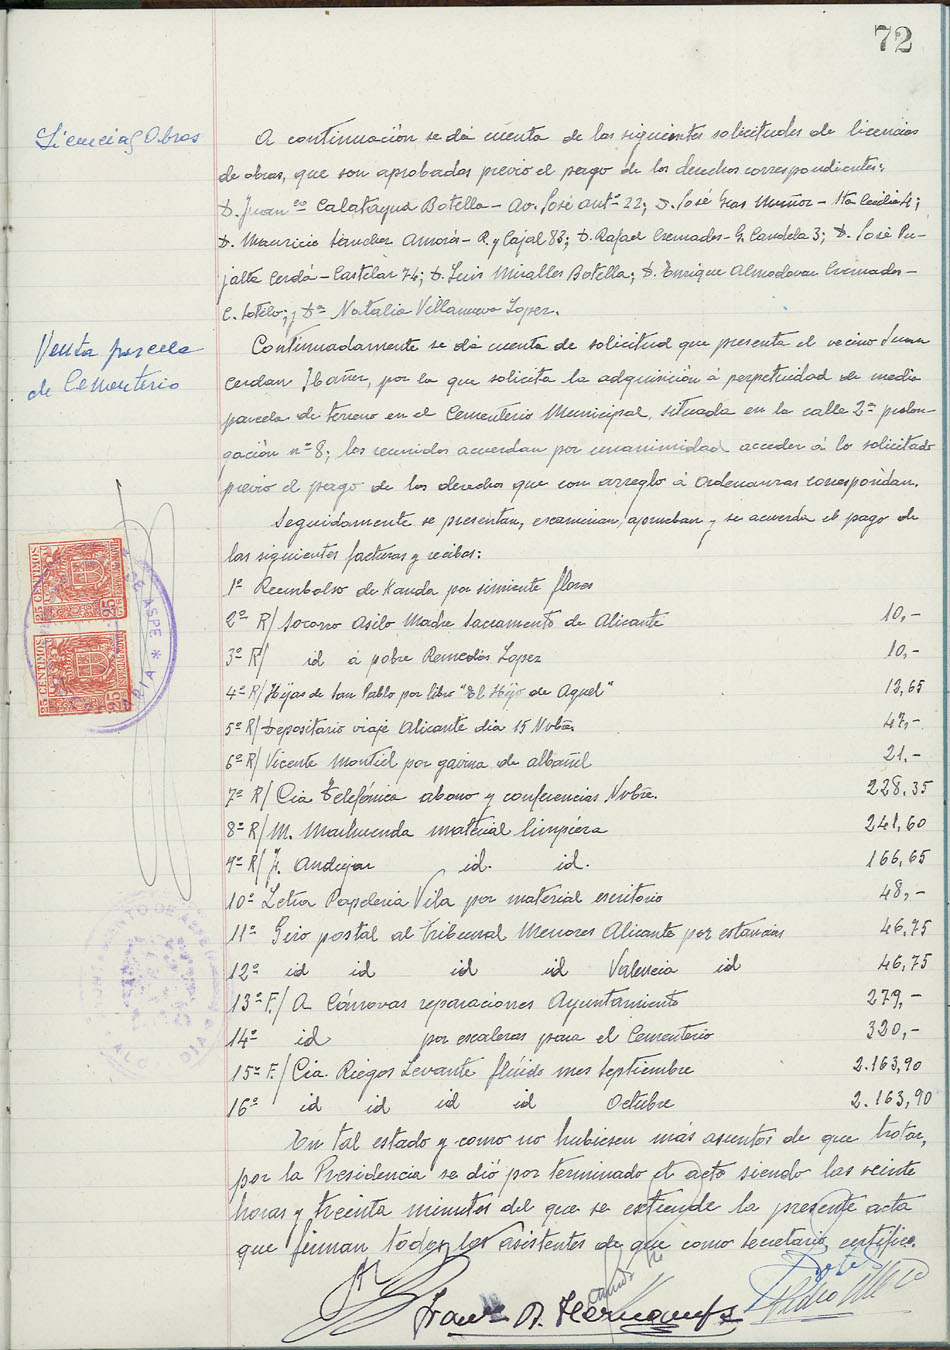 72
Licencias Obras
A continuación se dá cuenta de las siguientes solicitudes de licencias
de obras, que son aprobadas previo el pago de los derechos correspondientes:
D. Juan Calatayud Botella - Av. José Antº 22; D. José Gras Muñoz - Sta Cecilia 4;
D. Mauricio Sánchez Amorós - R. y Cajal 83; D. Rafael Cremades - G. Candela 3; D. José Pu-
jalte Cerdá - Castelar 74; D. Luis Miralles Botella; D. Enrique Almodovar Cremades -
C. Sotelo; y Dª Natalia Villanueva Lopez.
Venta parcela
de Cementerio
Continuadamente se dá cuenta de solicitud que presenta el vecino Juan
Cerdan Ibañez, por la que solicita la adquisición á perpetuidad de media
parcela de terreno en el Cementerio Municipal, situada en la calle 2ª prolon-
gación nº 8; los reunidos acuerdan por unanimidad acceder á lo solicitado
previo el pago de los derechos que con arreglo á Ordenanzas correspondan.
Seguidamente se presentan, examinan, aprueban y se acuerda el pago de
las siguientes facturas y recibos:
1º Reembolso de por simiente flores
2º R/ Socorro Asilo Madre Sacramento de Alicante 10,-
3º R/ id á pobre Remedios Lopez 10,-
4º R/ Hijas de San Pablo por libro "El Hijo de Aquel" 13,65
5º R/ Depositario viaje Alicante dia 15 Nobre. 47,-
6º R/ Vicente Montiel por gavina de albañil 21.-
7º R/ Cia Telefónica abono y conferencias Nobre. 228,35
8º R/ M. Machuenda material limpieza 241,60
9º R/ J. Andujar id. id. 166,65
10º Letra Papeleria Vila por material escritorio 48,-
11º Giro postal al Tribunal Menores Alicante por estancias 46,75
12º id id id id Valencia id 46,75
13º F./ A Cánovas reparaciones Ayuntamiento 279,-
14º id por escaleras para el Cementerio 320,-
15º F./ Cia. Riegos Levante flúido mes Septiembre 2.163,90
16º id id id id Octubre 2.163,90
En tal estado y como no hubiesen más asuntos de que tratar,
por la Presidencia se dió por terminado el acto siendo las veinte
horas y treinta minutos del que se extiende la presente acta
que firman todos los asistentes de que como Secretario, certifico.
25 CENTIMOS
25
25 CENTIMOS
25
DE ASPE
Hernandez
Pedro